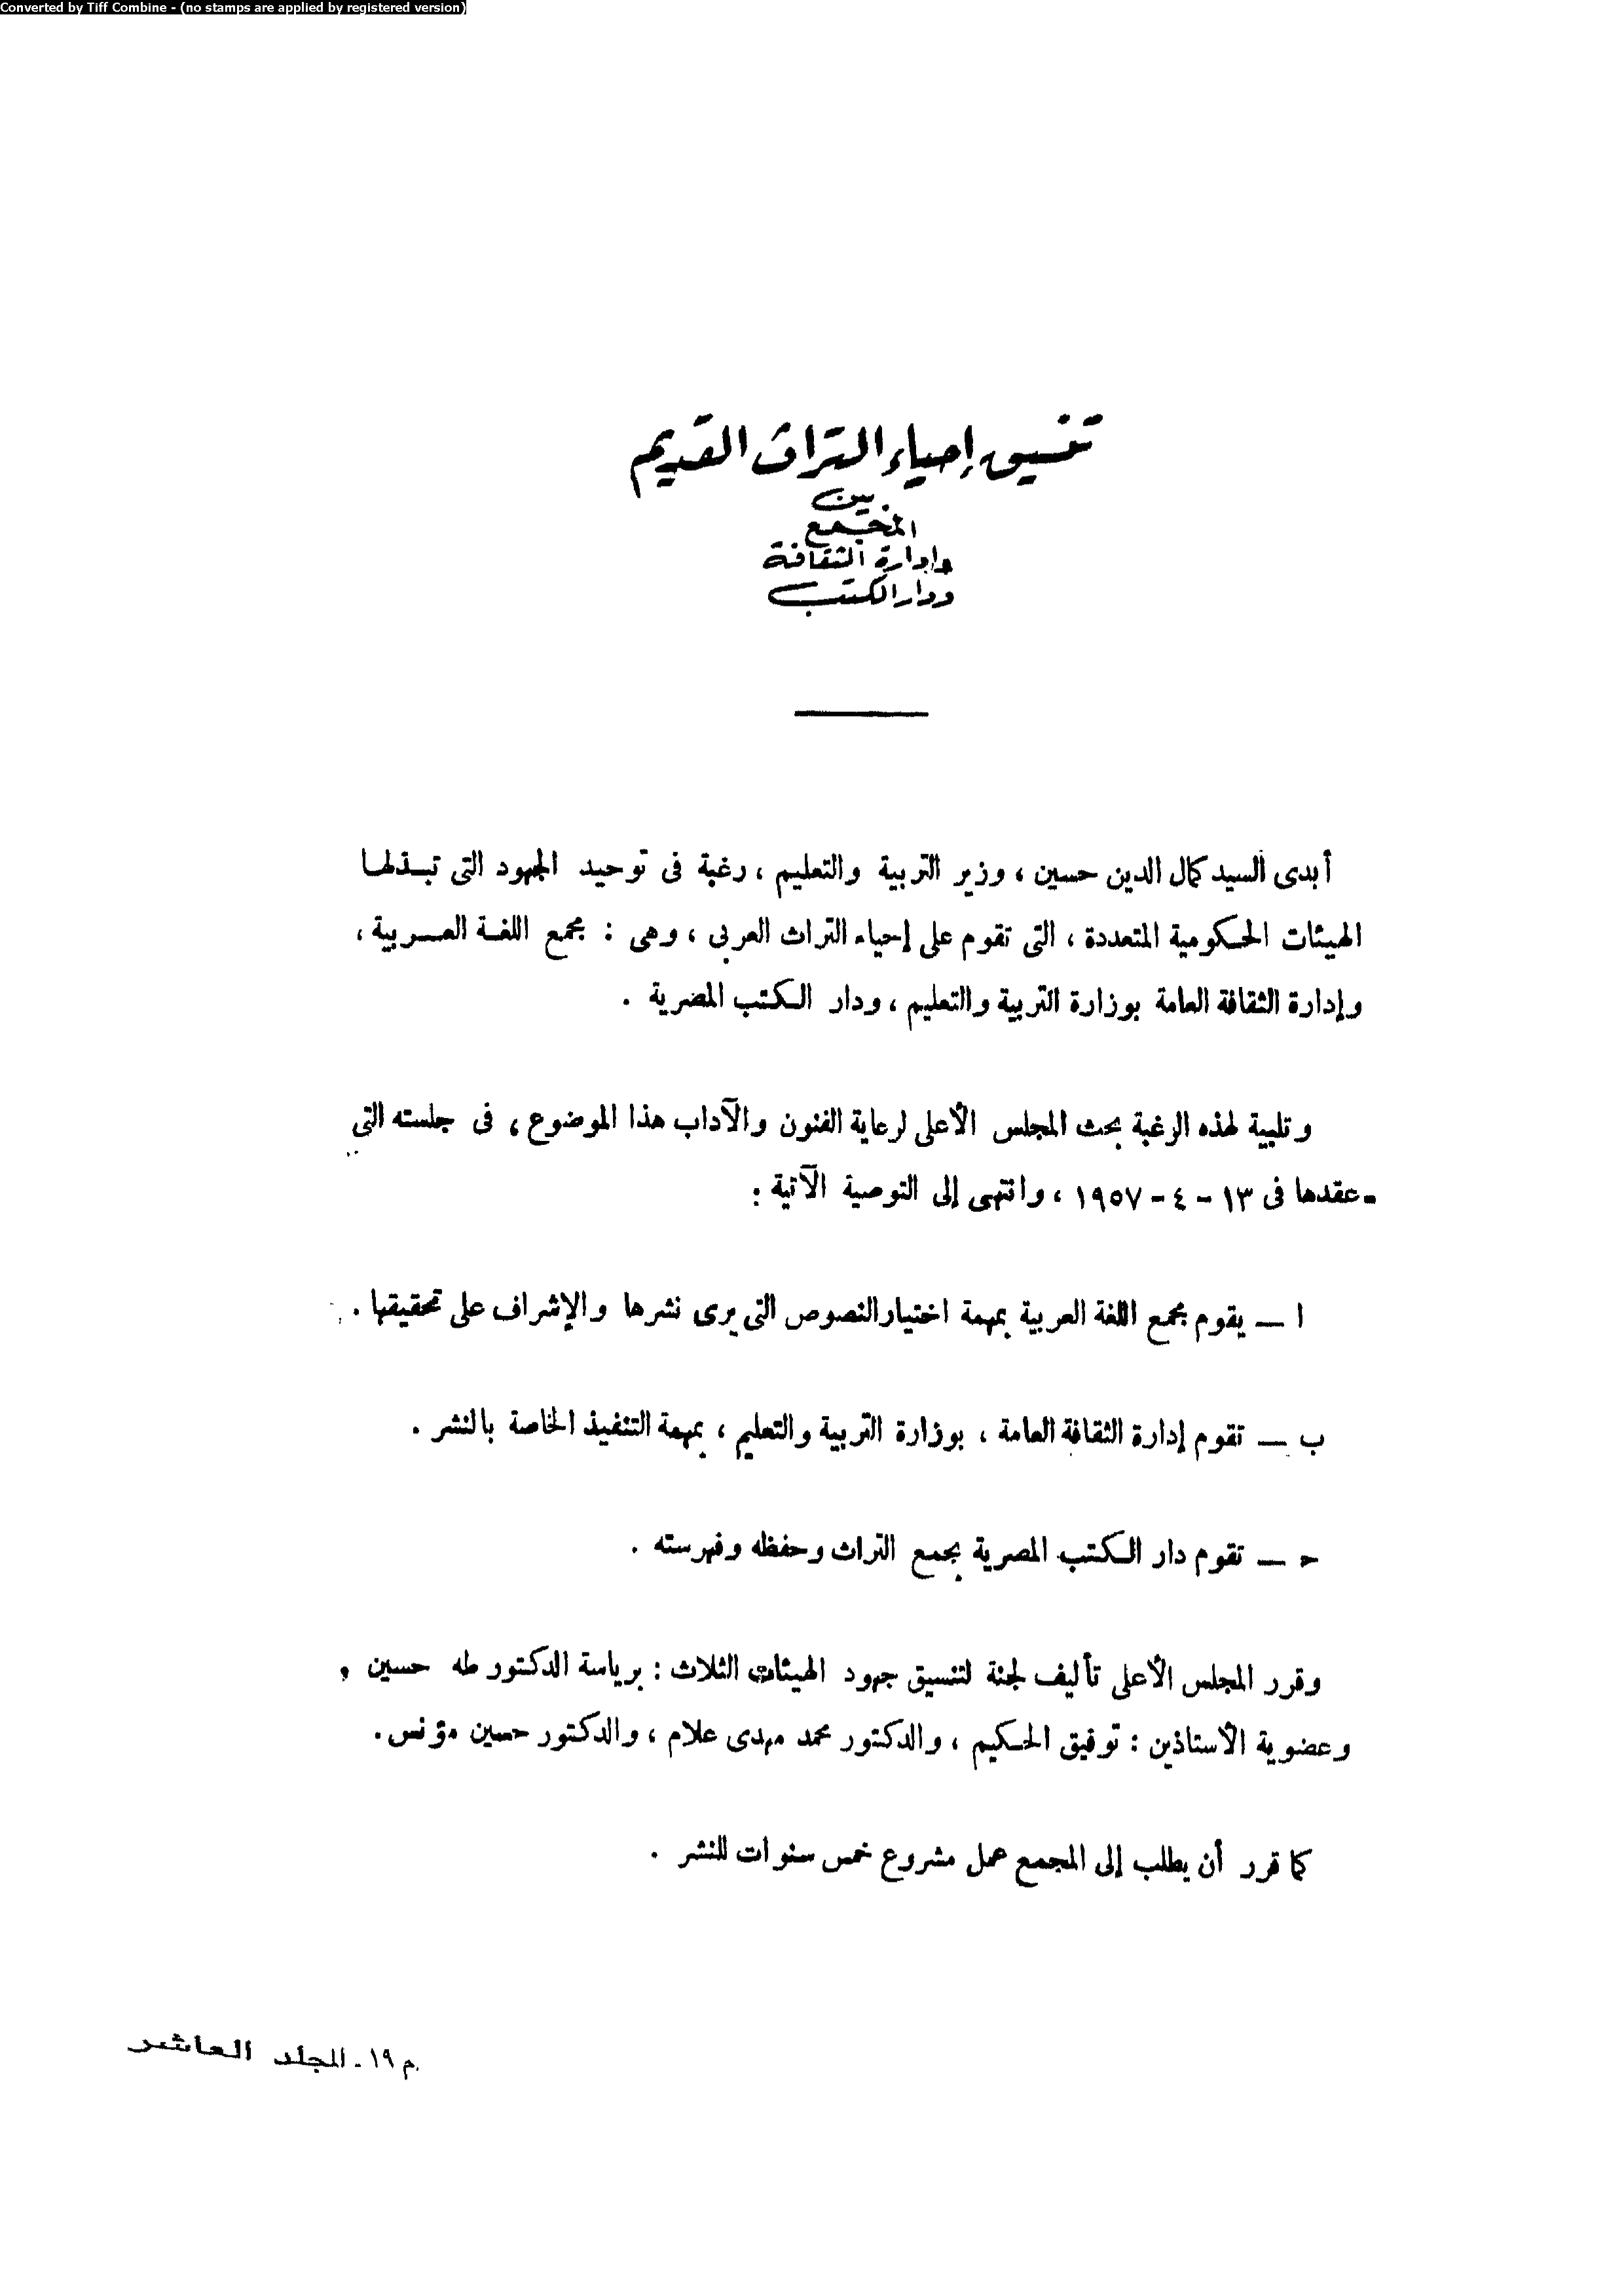 Converted by Tiff Combine - (no stamps are applied by registered version)
تنسيق إحياء التراث القديم
بين
المجمع
وإدارة الثقافة
ودار الكتب
أبدى السيد كمال الدين حسين ، وزير التربية والتعليم ، رغبة فى توحيد الجهود التى تبذلها
الهيئات الحكومية المتعددة ، التى تقوم على إحياء التراث العربى ، وهى : مجمع اللغة العربية ،
وإدارة الثقافة العامة بوزارة التربية والتعليم ، ودار الكتب المصرية .
وتلبية لهذه الرغبة بحث المجلس الأعلى لرعاية الفنون والآداب هذا الموضوع ، فى جلسته التى
عقدها فى ١٣ - ٤ - ١٩٥٧ ، وانتهى إلى التوصية الآتية :
ا — يقوم مجمع اللغة العربية بمهمة اختيار النصوص التى يرى نشرها والإشراف على تحقيقها .
ب — تقوم إدارة الثقافة العامة ، بوزارة التربية والتعليم ، بمهمة التنفيذ الخاصة بالنشر .
حـ — تقوم دار الكتب المصرية بجمع التراث وحفظه وفهرسته .
وقرر المجلس الأعلى تأليف لجنة لتنسيق جهود الهيئات الثلاث : برياسة الدكتور طه حسين ,
وعضوية الأستاذين : توفيق الحكيم ، والدكتور محمد مهدى علام ، والدكتور حسين مؤنس .
كما قرر أن يطلب إلى المجمع عمل مشروع خمس سنوات للنشر .
م ١٩ - المجلد العاشر